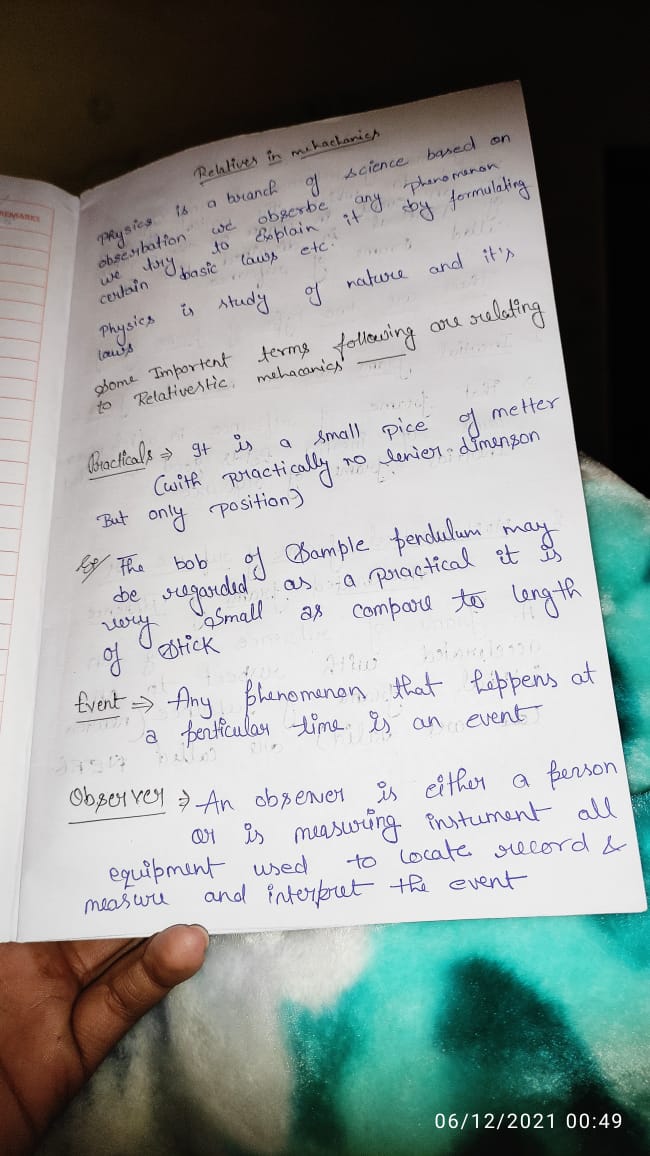 REMARKS
Relatives in mehachanics
Physics is a branch of science based on
obserbation we obserbe any phenomenon
we try to Explain it by formulating
certain basic laws etc.
Physics is study of nature and it's
laws
Some Importent terms following are relating
to Relativestic mehacanics
Practicals ⇒ It is a small pice of metter
(with practically no lenier dimenson
But only position)
Eg The bob of Sample pendulum may
be regarded as a practical it is
very Small as compare to length
of Stick
Event ⇒ Any phenomenon that happens at
a perticular time is an event
Observer ⇒ An observer is either a person
or is measuring instument all
equipment used to locate record &
measure and interpret the event
06/12/2021 00:49